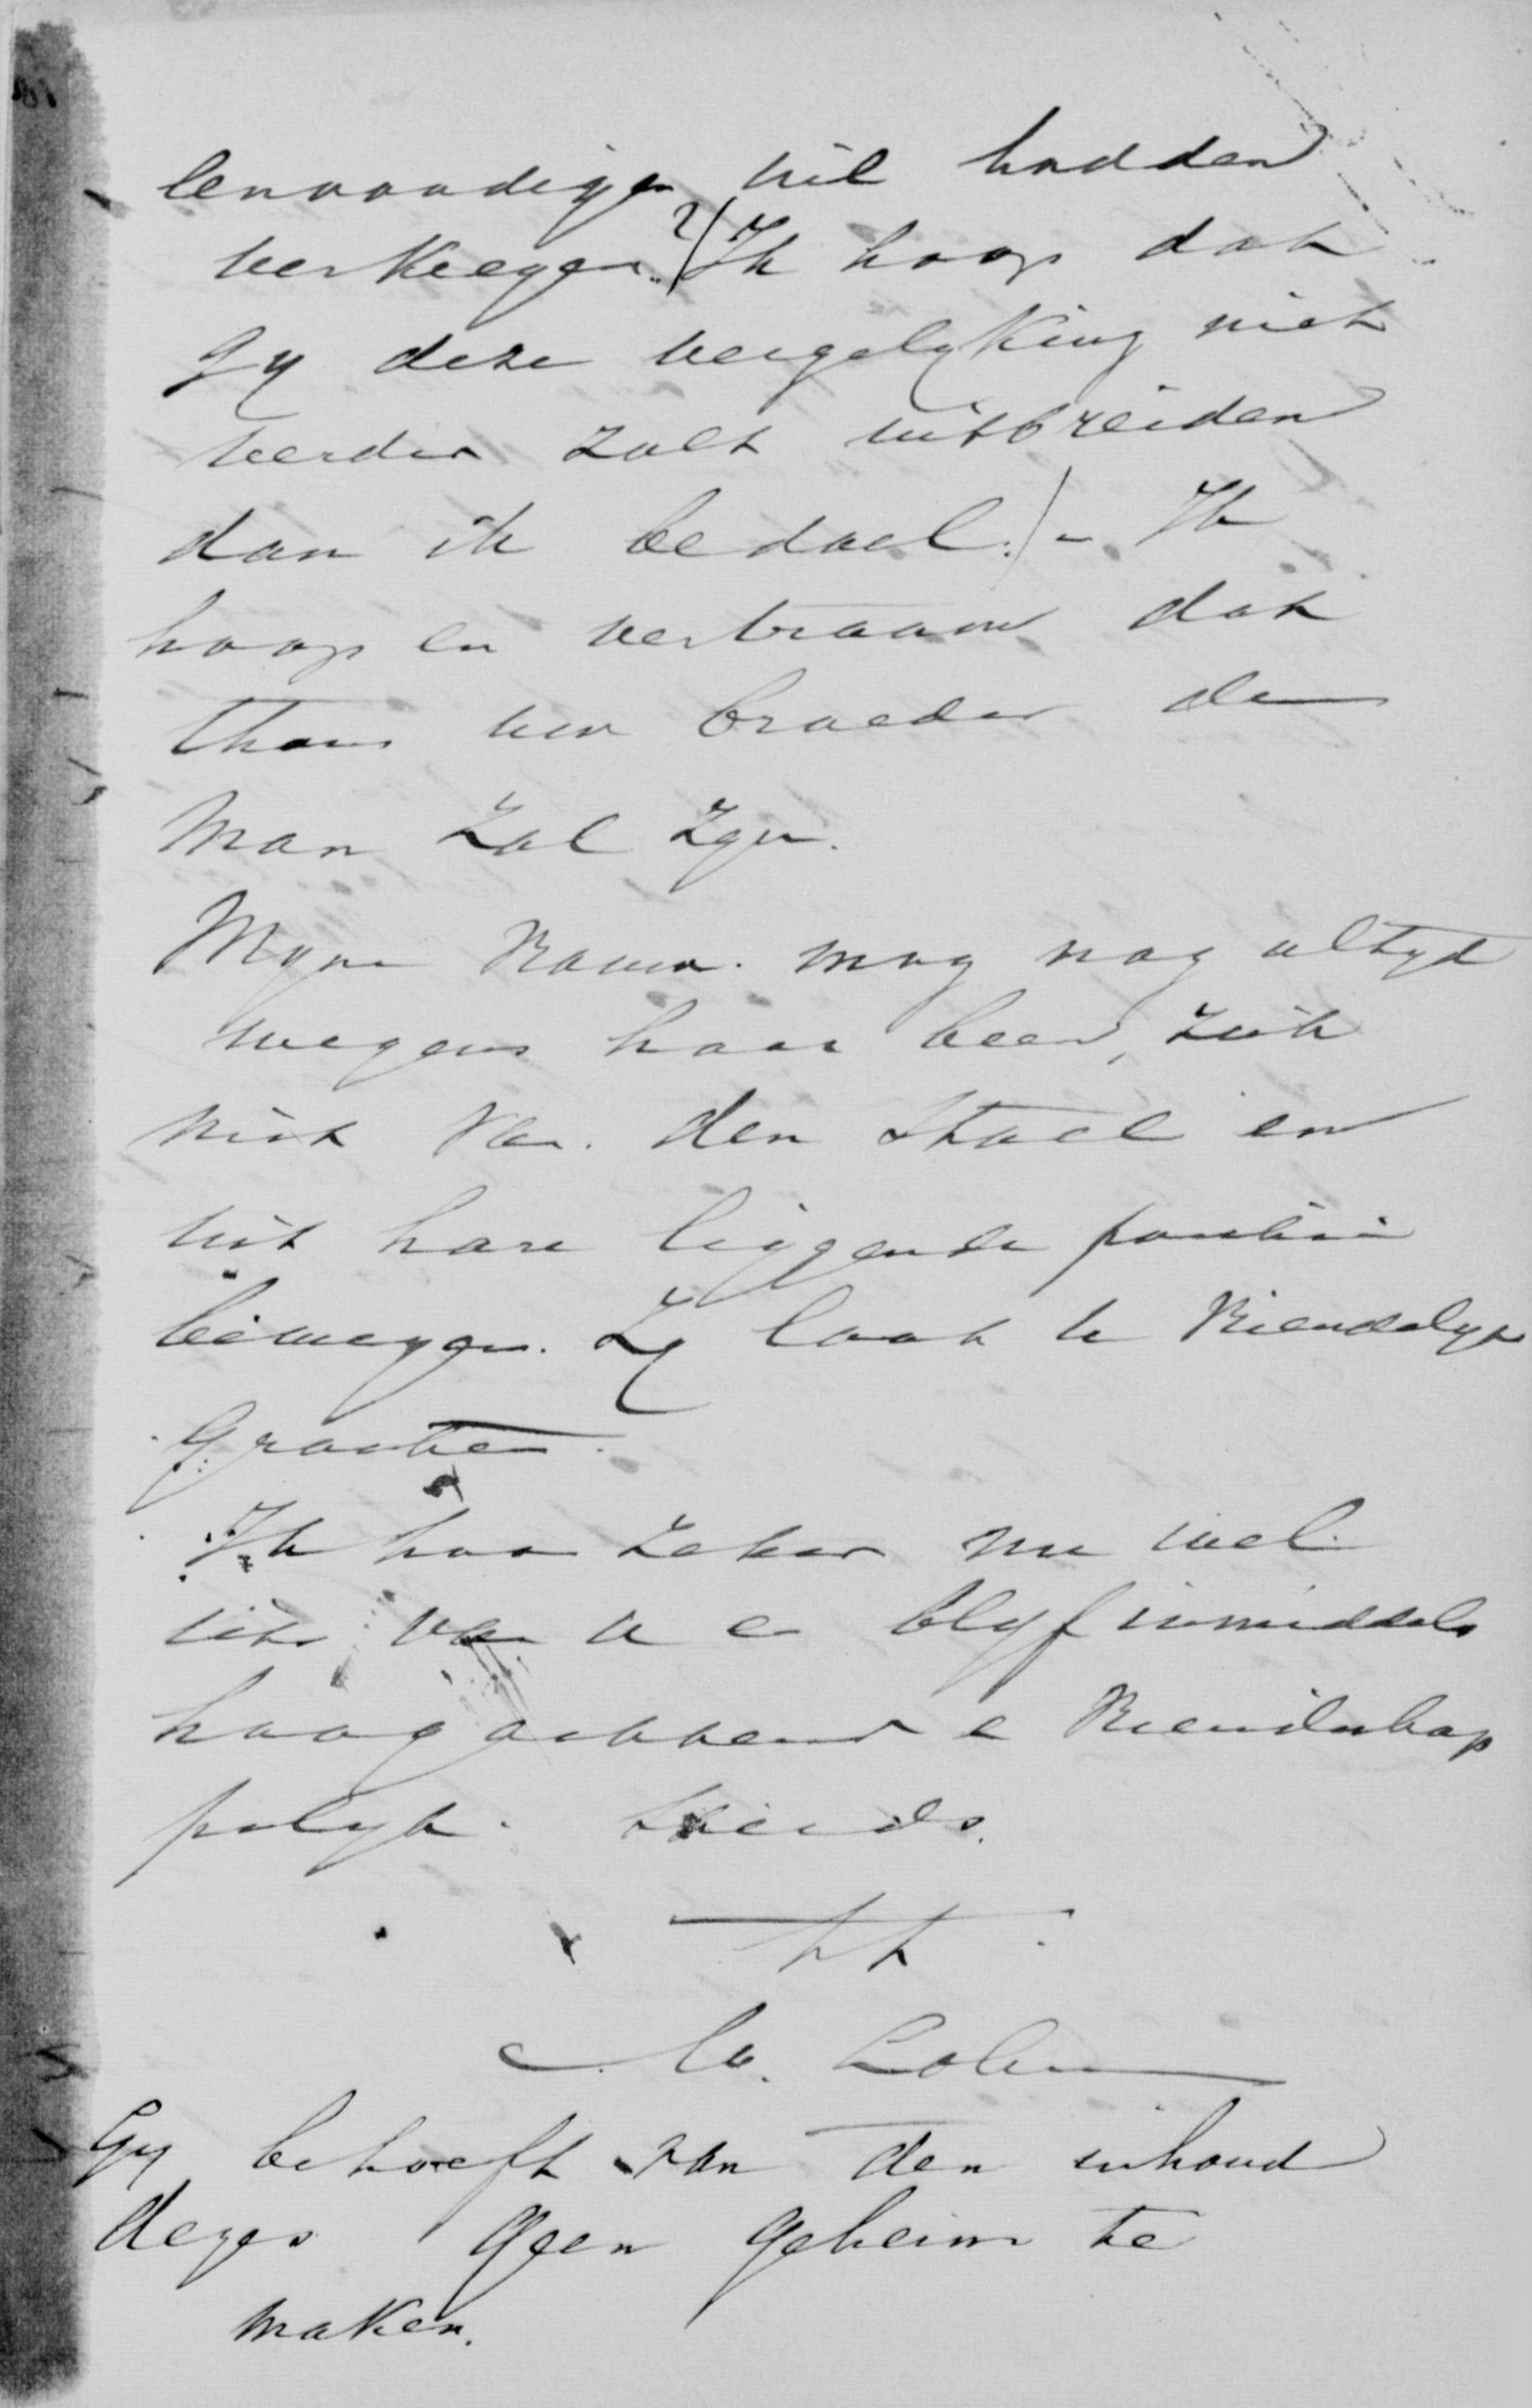 eenvoudigen uil hadden
verkregen? (Ik hoop dat
Gy deze vergelyking niet
verder zult uitbreiden
dan ik bedoel.) - Ik
hoop en vertrouw dat
thans uw broeder de
man zal zyn.
Myne vrouw mag nog altyd
wegens haar been, zich
niet van den stoel en
uit hare liggende positie
bewegen. Zy laat u vriendelyk
groeten.
Ik hoor zeker nu wel
iets van u en blyf inmiddels
hoogachtend en vriendschap
pelyk. steeds.
tt
Co.
Gy behoeft van den inhoud
dezes geen geheim te
maken.